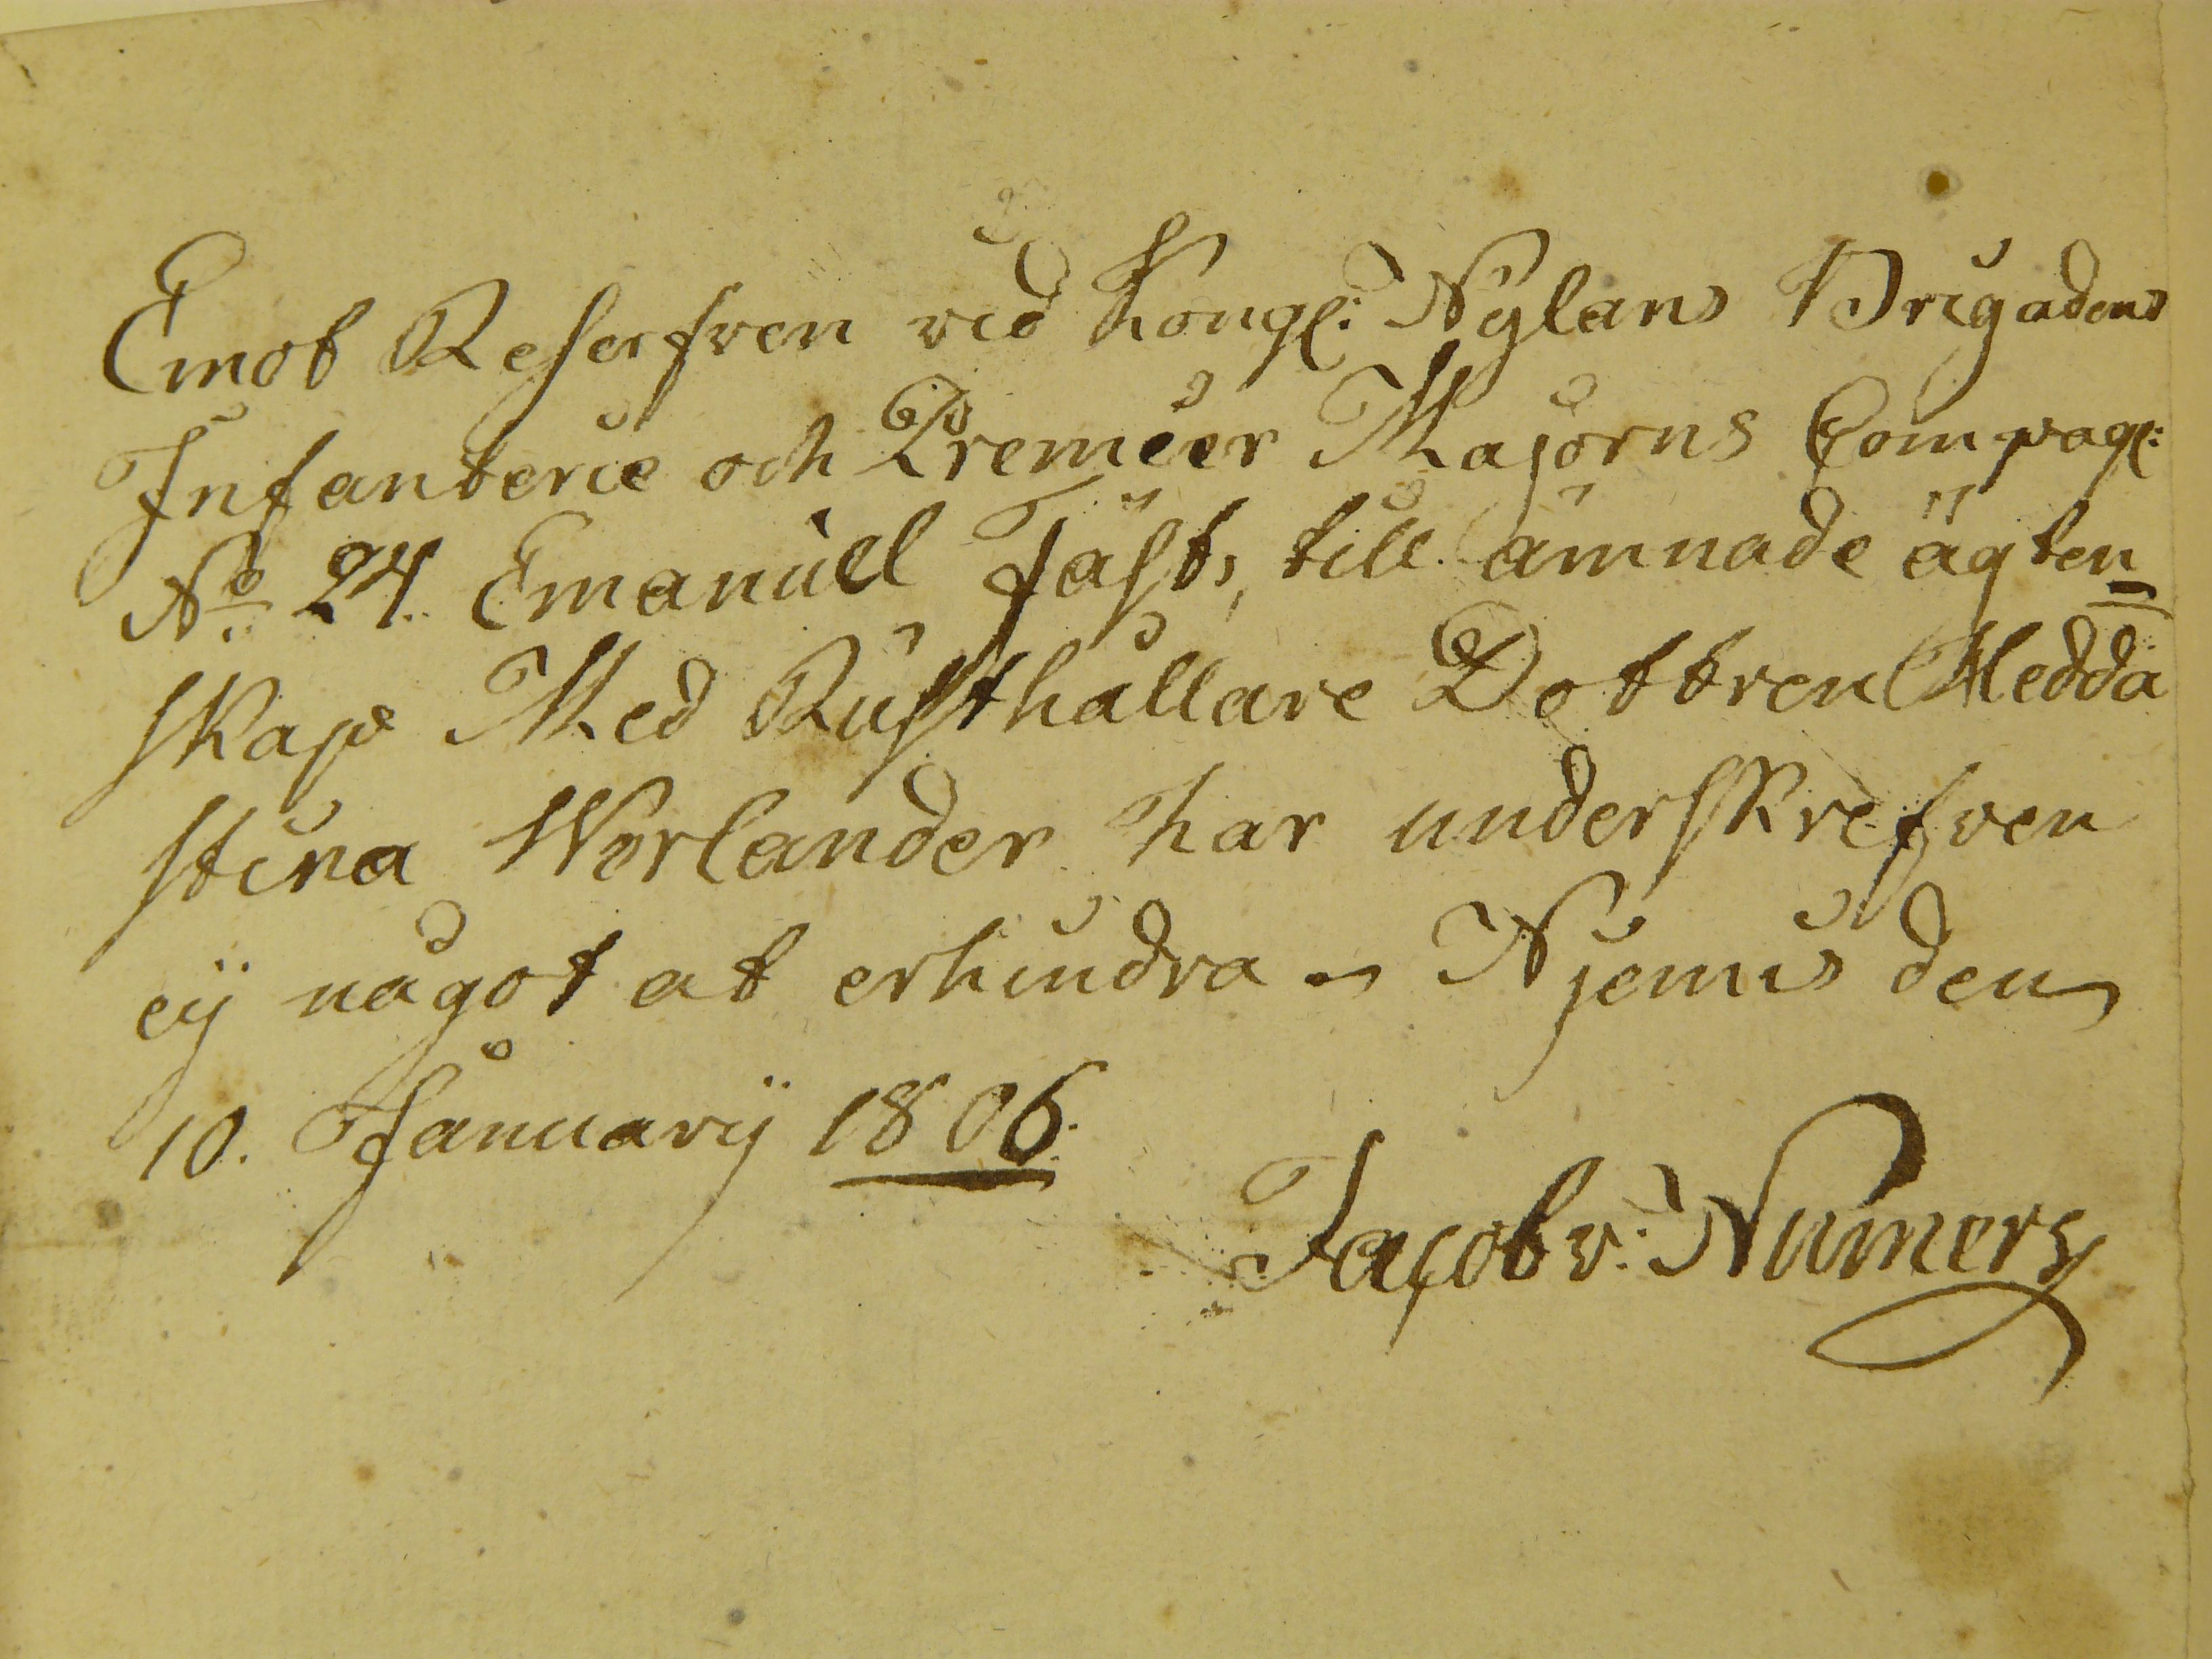 Emot Reserfven vid Kongl: Nylans Brigadens
Infanterie och Premier Majorns Compagl:
No 24. Emanuel Fäst, till ämnade ägten=
skap Med Rusthållare Dottren Hedda
stina Worlander har underskrefven
eÿ något at erhindra - Njemis den
10. Januarÿ 1806.
Jacob v: Numers